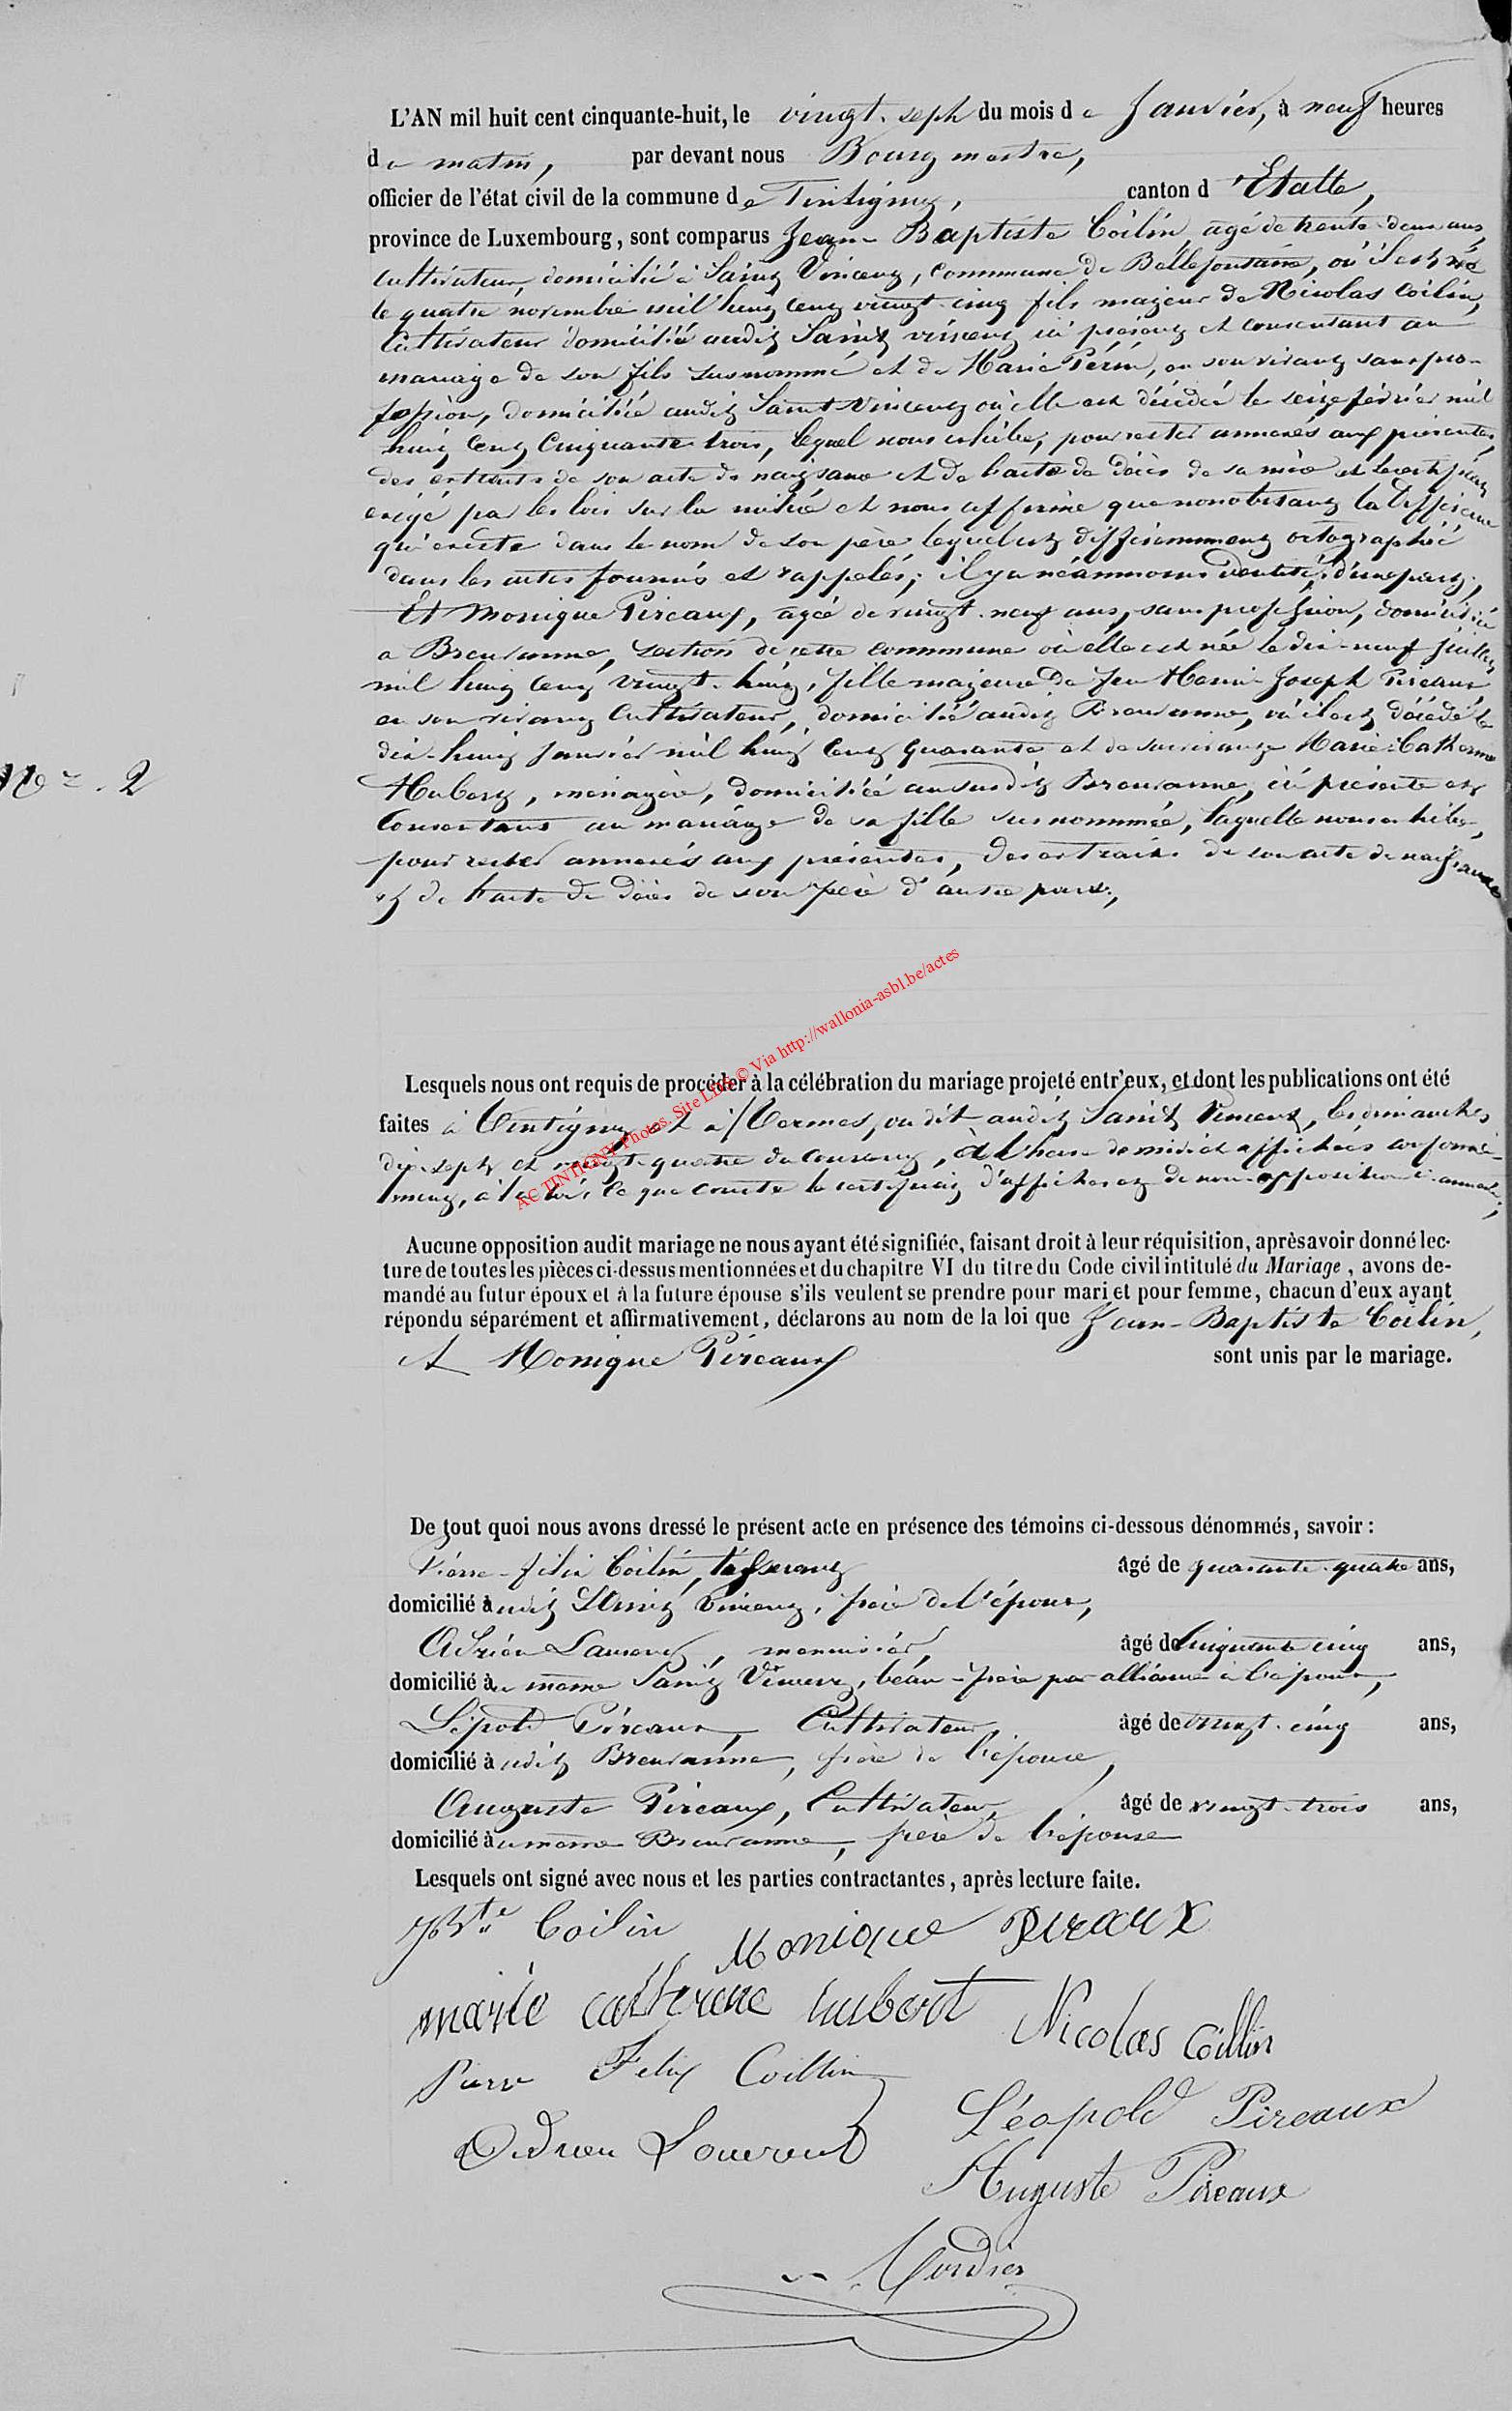 L'AN mil huit cent cinquante-huit, le vingt-sept du mois de Janvier, à neuf heures
du matin, par devant nous Bourgmestre,
officier de l'état civil de la commune de Tintigny, canton d'Etalle,
province de Luxembourg, sont comparus Jean-Baptiste Coilin, agé de trente-deux ans,
cultivateur, domicilié à Saint Vincent, commune de Bellefontaine, où il est né
le quatre novembre mil huit cent vingt-cinq fils majeur de Nicolas Coilin,
Cultivateur domicilié audit Saint vincent ici présent et consentant au
mariage de son fils susnommé et de Marie Périn, en son vivant sans pro-
fession, domiciliée audit Saint-Vincent où elle est décédée le seize février mil
huit cent cinquante trois, lequel nous exhibe, pour rester annexés aux présentes,
des extraits de son acte de naissance et de l'acte de décès de sa mère et le certificat
exigé par les lois sur la milice et nous affirme que nonobstant la différence
qui existe dans le nom de son père lequel est différemment ortographié
dans les actes fournis et rappelés, il y a néanmoins identité, d'une part,
Et Monique Pireaux, agée de vingt-neuf ans, sans profession, domiciliée
a Breuvanne, section de cette commune où elle est née le dix-neuf Juillet
mil huit cent vingt-huit, fille majeure de feu Henri-Joseph Pireaux,
en son vivant Cultivateur, domicilié audit Breuvanne, où il est décédé le
dix-huit Janvier mil huit cent quarante et de survivante Marie-Catherine
No 2
Hubert, ménagère, domiciliée au susdit Breuvanne, ici présente et
Consentant au mariage de sa fille susnommée, laquelle nous exhibe,
pour rester annexés aux présentes, des extraits de son acte de naissance
et de l'acte de décès de son père d'autre part,
AC TINTIGNY Photos. Site LDS © Via http://wallonia-asbl.be/actes
Lesquels nous ont requis de procéder à la célébration du mariage projeté entr'eux, et dont les publications ont été
faites à Tintigny et à audit Saint Vincent, les dimanches
dix-sept et vingt-quatre du courant, à l'heure de midi et affichées conformé-
ment, à la loi ce que conste le certificat d'affiches et de non-opposition ci-annexé,
Aucune opposition audit mariage ne nous ayant été signifiée, faisant droit à leur réquisition, après avoir donné lec-
ture de toutes les pièces ci-dessus mentionnées et du chapitre VI du titre du Code civil intitulé du Mariage, avons de-
mandé au futur époux et à la future épouse s'ils veulent se prendre pour mari et pour femme, chacun d'eux ayant
répondu séparément et affirmativement, déclarons au nom de la loi que Jean-Baptiste Coilin,
et Monique Pireaux sont unis par le mariage.
De tout quoi nous avons dressé le présent acte en présence des témoins ci-dessous dénommés, savoir :
Pierre-félix Coilin, tisserant âgé de quarante-quatre ans,
domicilié audit Saint Vincent, frère de l'époux,
Adrien Laurent, menuisier, âgé de cinquante cinq ans,
domicilié au meme Saint Vincent, beau-frère par alliance à l'époux,
Léopold Pireaux, Cultivateur, âgé de vingt-cinq ans,
domicilié audit Breuvanne, frère de l'épouse,
Auguste Pireaux, Cultivateur, âgé de vingt-trois ans,
domicilié au meme Breuvanne, frère de l'épouse
Lesquels ont signé avec nous et les parties contractantes, après lecture faite.
JBte Coilin Monique Pireaux
marie catherine hubert Nicolas Coillin
Pierre Felix Coillin
Léopold Pireaux
Adrien Lourent
Auguste Pireaux